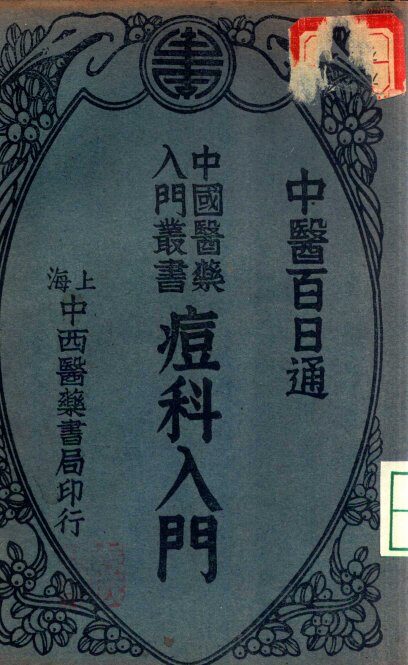 中醫百日通
中國醫藥
入門叢書
痘科入門
上海
中西醫藥書局印行